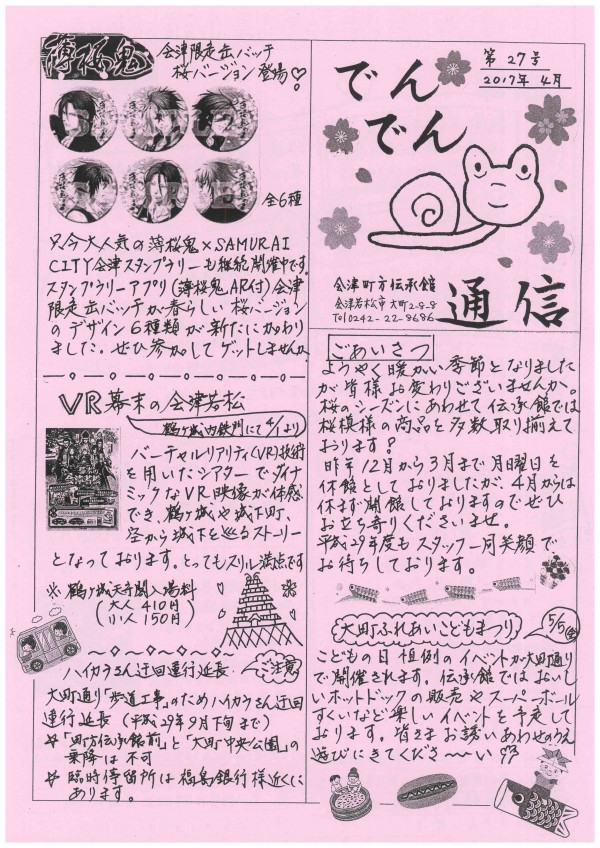 第27号
2017年4月
でん
でん
通信
会津町方伝承館
会津若松市大町2-8-8
Tel0242-22-8686
ごあいさつ
ようやく暖かい季節となりました
が皆様お変わりございませんか。
桜のシーズンにあわせて伝承館では
桜模様の商品を多数取り揃えて
おります?
昨年12月から3月まで月曜日を
休館としておりましたが、4月からは
休まず開館しておりますのでぜひ
お立ち寄りくださいませ。
平成29年度もスタッフ一同笑顔で
お待ちしております。
大町ふれあいこどもまつり
5/5(金)
こどもの日恒例のイベントが大町通り
で開催されます。伝承館ではおいし
いホットドックの販売やスーパーボール
すくいなど楽しいイベントを予定して
おります。皆さまお誘いあわせのうえ
遊びにきてくださ〜い♡♡
薄桜鬼
会津限定缶バッチ
桜バージョン登場♡!
全6種
只今大人気の薄桜鬼×SAMURAI
CITY会津スタンプラリーも継続開催中です。
スタンプラリーアプリ(薄桜鬼AR付)会津
限定缶バッチが春らしい桜バージョン
のデザイン6種類が新たに加わり
ました。ぜひ参加してゲットしませんか
VR幕末の会津若松
鶴ヶ城内鉄門にて4/1より
バーチャルリアリティ(VR)技術
を用いたシアターでダイナ
ミックなVR映像が体感
でき、鶴ヶ城や城下町、
空から城下を巡るストーリー
となっております。とってもスリル満点です
※鶴ヶ城天守閣入場料
(大人 410円)
(小人 150円)
ハイカラさん迂回運行延長
ご注意
大町通り「歩道工事」のためハイカラさん迂回
運行延長(平成29年9月下旬まで)
☆「町方伝承館前」と「大町中央公園」の
乗降は不可
☆臨時停留所は福島銀行様近くに
あります。